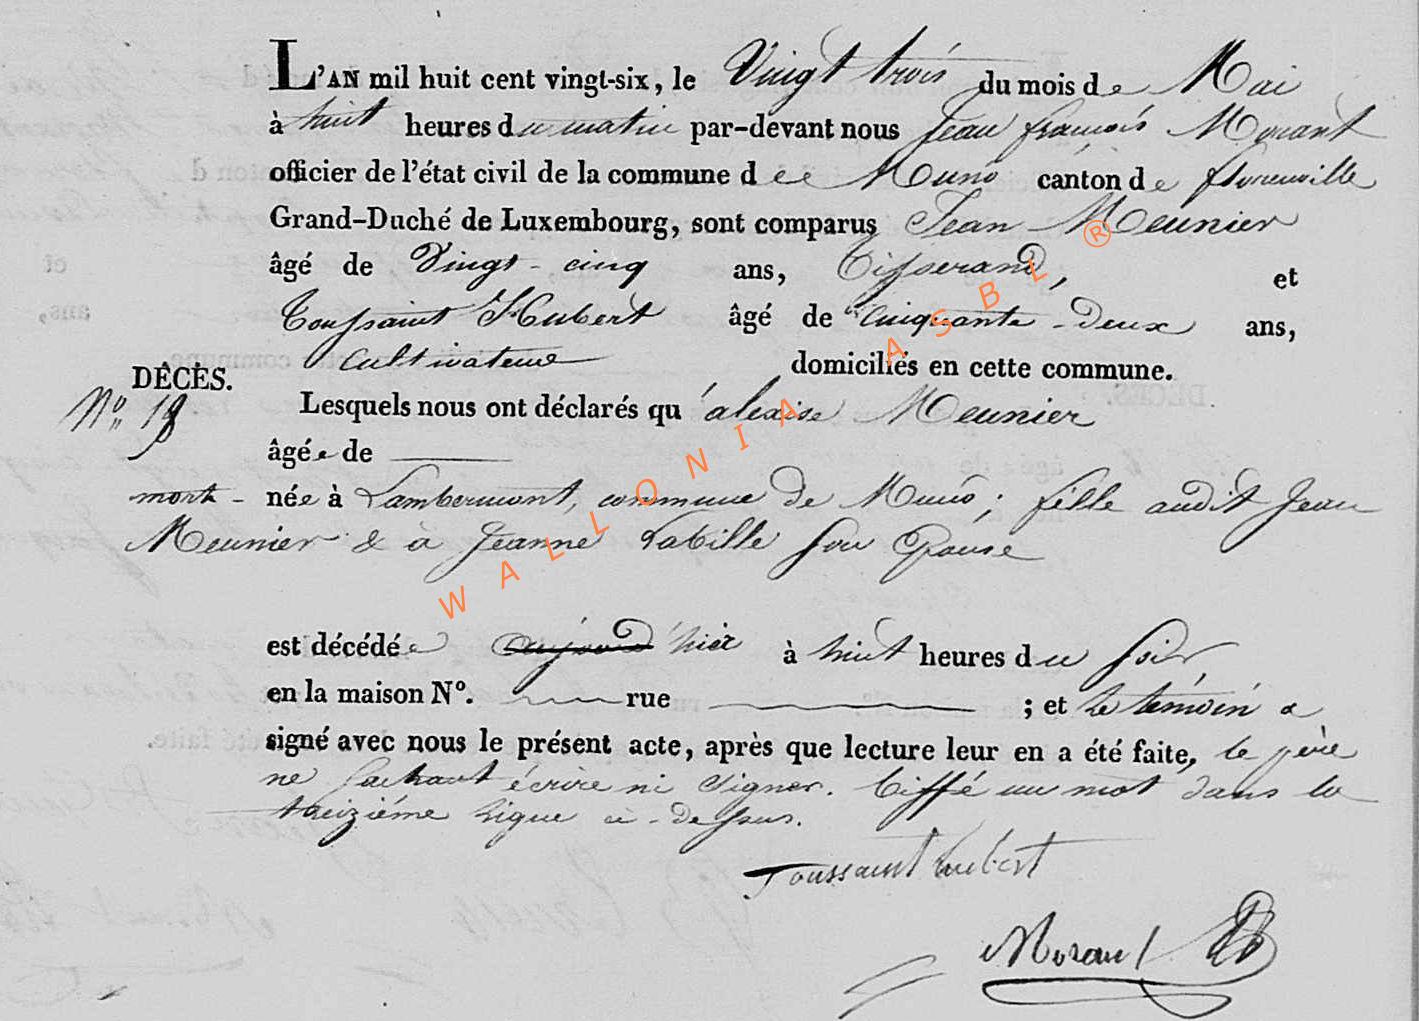 L'AN mil huit cent vingt-six, le Vingt trois du mois de Mai
à huit heures du matin par-devant nous Jean françois Morant
officier de l'état civil de la commune de Muno canton de florenville
Grand-Duché de Luxembourg, sont comparus Jean Meunier
âgé de Vingt-cinq ans, Tisserand, et
Toussaint Hubert âgé de Cinquante-deux ans,
Cultivateur domiciliés en cette commune.
DÉCÈS.
N° 18
Lesquels nous ont déclarés qu'alexise Meunier
âgée de
morte-née à Lambermont, commune de Muno; fille audit Jean
Meunier & à Jeanne Labille son Epouse
est décédée aujourd'hier à huit heures du soir
en la maison N°. rue ; et le témoin a
signé avec nous le présent acte, après que lecture leur en a été faite, le père
ne sachant écrire ni signer. biffé un mot dans la
treizième ligne ci-dessus.
Toussaint hubert
Morant
WALLONIA ASBL ®